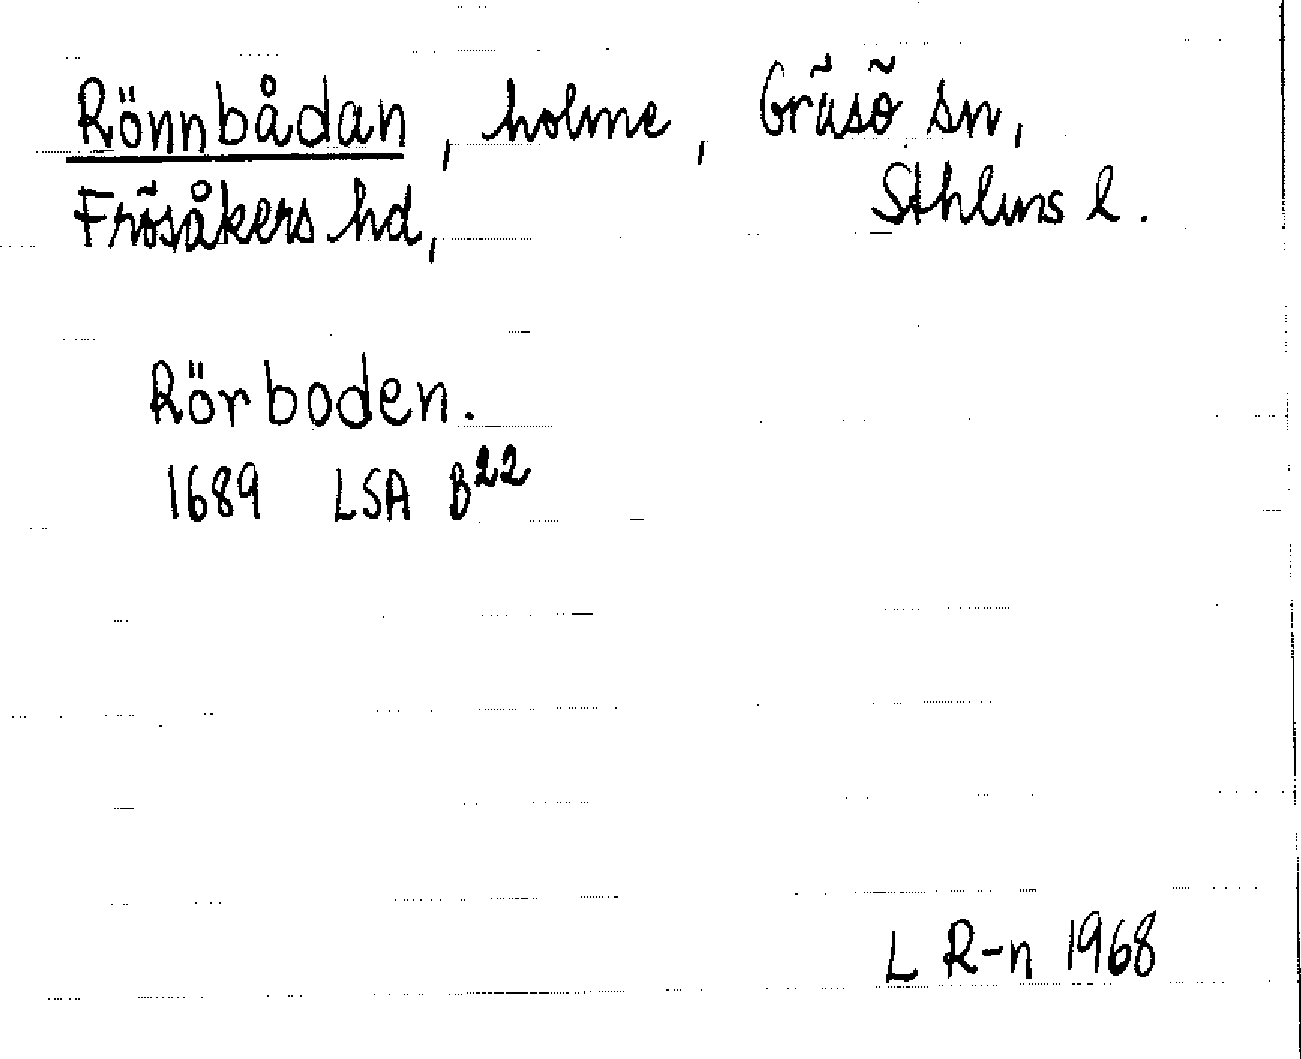 Rönnbådan, holme, Gräsö sn,
Frösåkers hd, Sthlms l.
Rörboden.
1689 LSA B²²
L R-n 1968